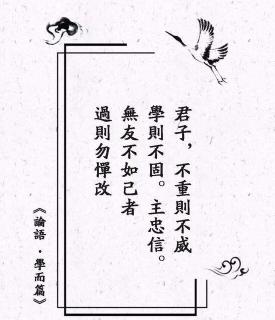 君子，不重則不威
學則不固。主忠信。
無友不如己者
過則勿憚改
《論語·學而篇》